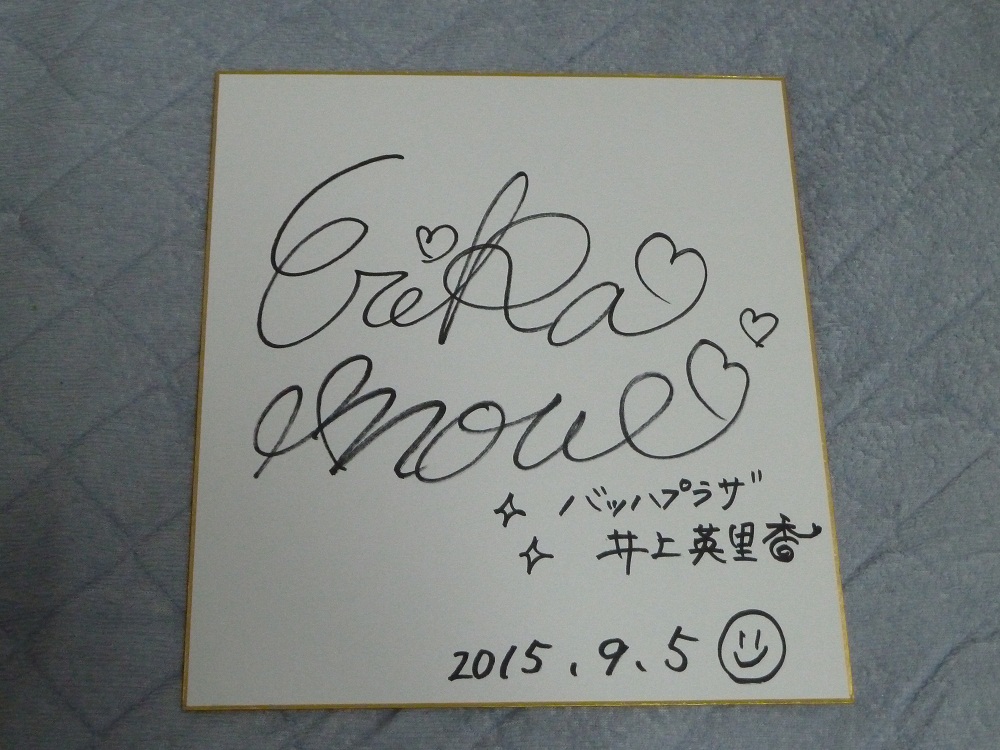 Erika
Inoue
バッハプラザ
井上英里香
2015.9.5